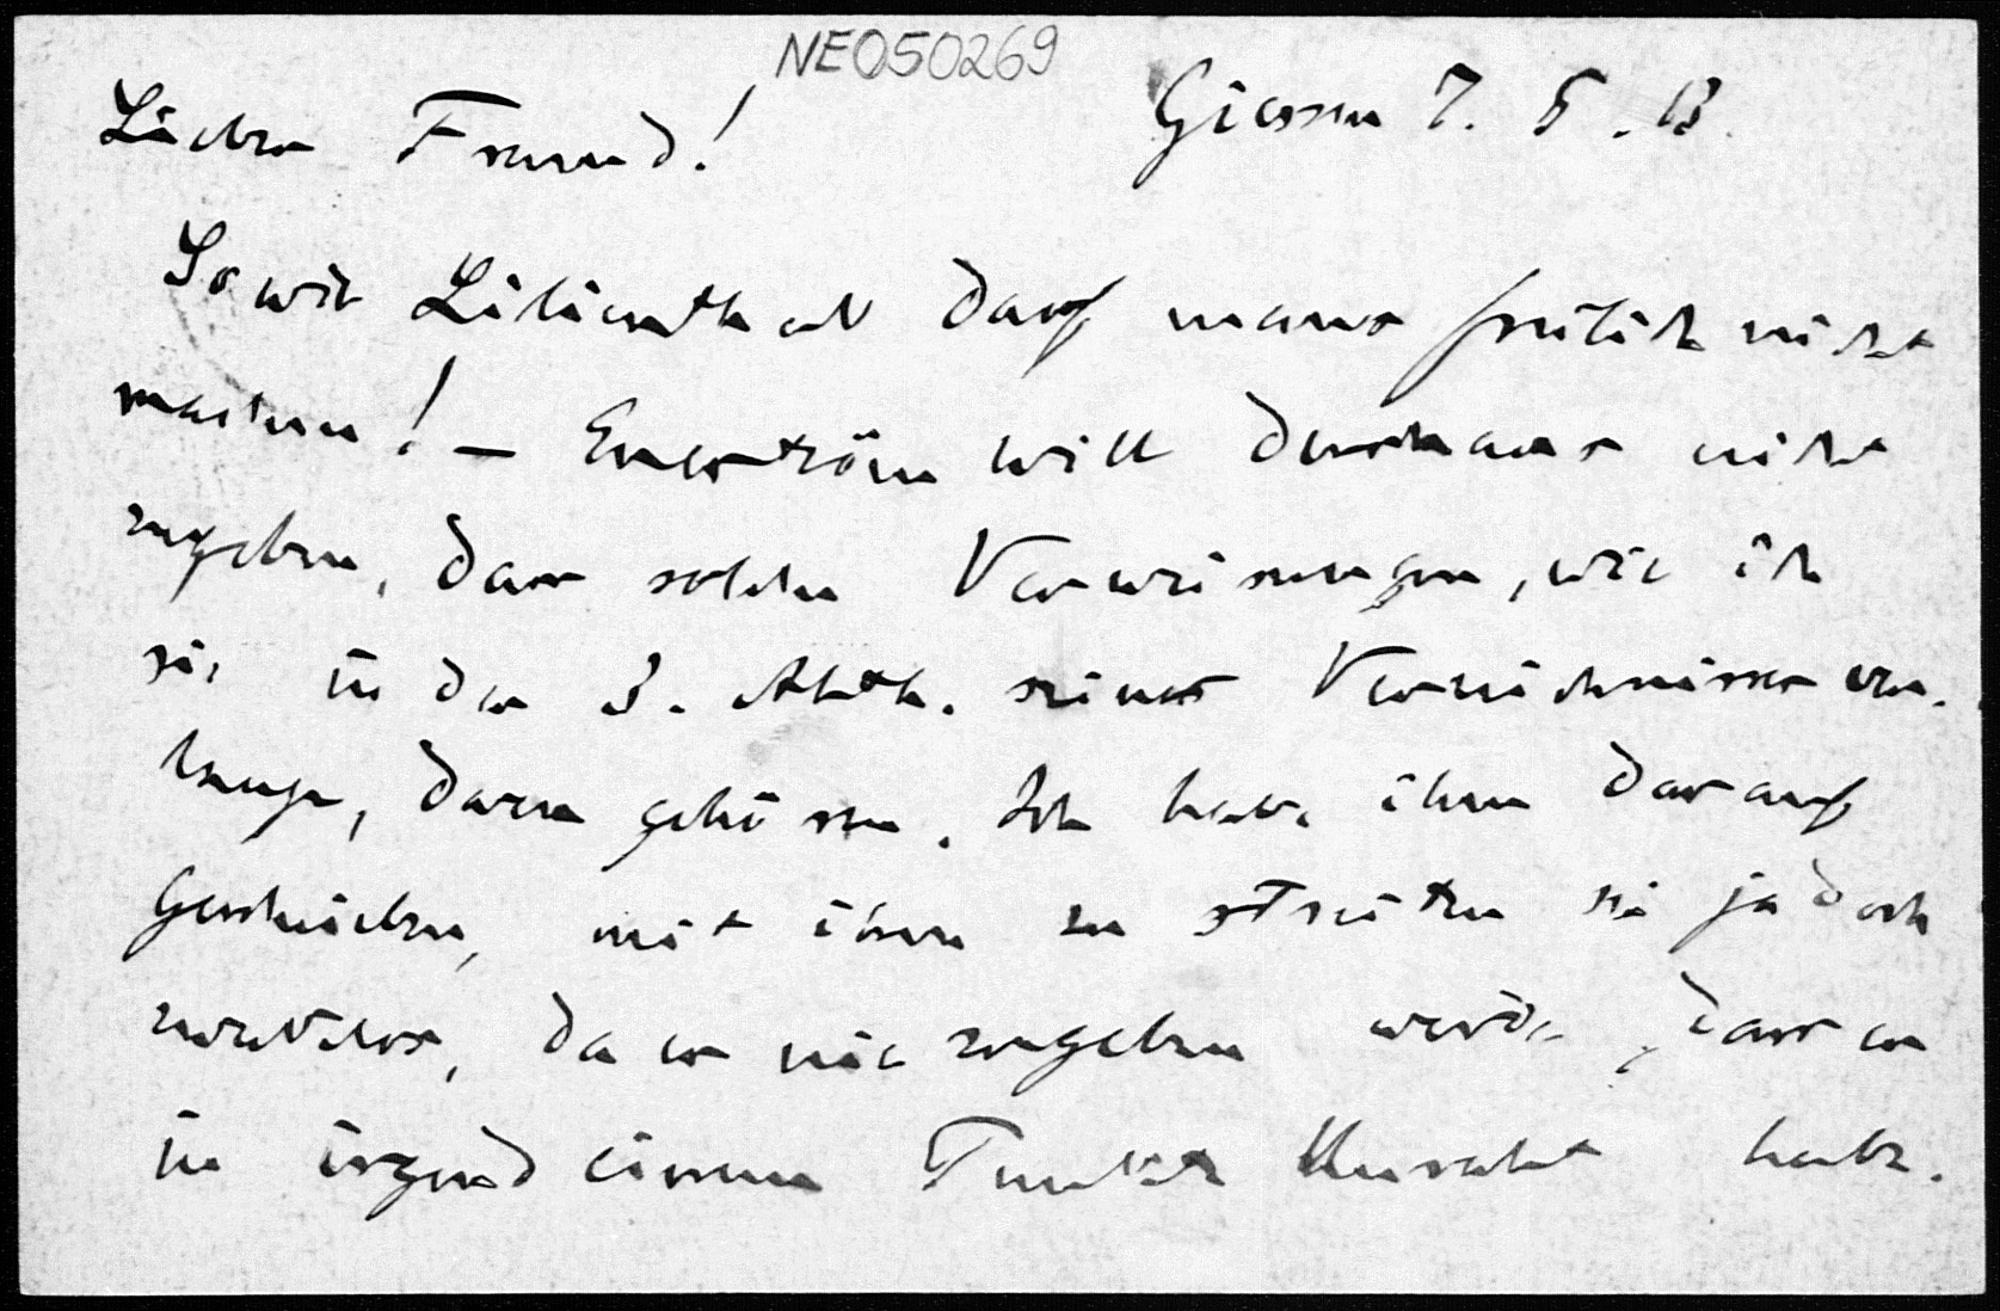 NE050269
Giessen 7. 5. 13.
Lieber Freund!
So wie Lilienthal darf mans freilich nicht
machen! – Eneström will durchaus nicht
zugeben, dass solche Verweisungen, wie ich
sie in der 3. Abth. seines Verzeichnisses ver-
lange, darin gehören. Ich habe ihm darauf
geschrieben, mit ihm zu streiten sei ja doch
zwecklos, da er nie zugeben werde, dass er
in irgend einem Punkte Unrecht habe.